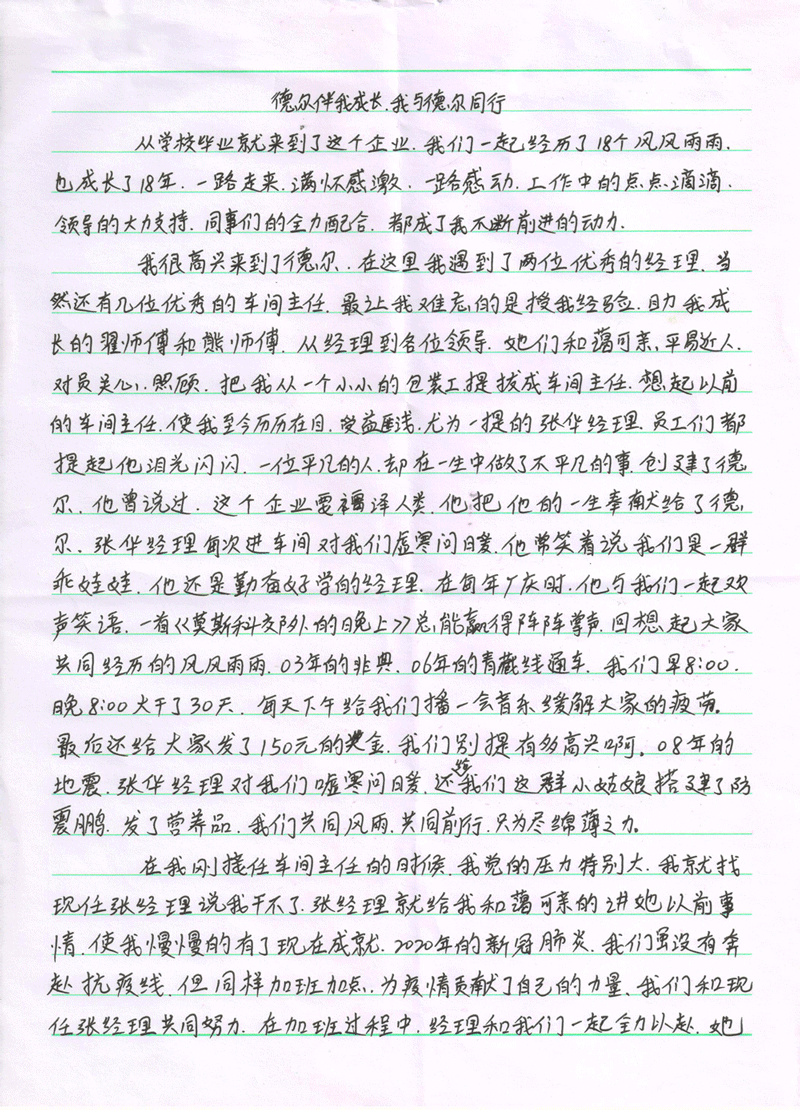 德尔伴我成长.我与德尔同行
从学校毕业就来到了这个企业.我们一起经历了18个风风雨雨.
也成长了18年.一路走来.满怀感激.一路感动.工作中的点点滴滴.
领导的大力支持.同事们的全力配合.都成了我不断前进的动力.
我很高兴来到了德尔.在这里我遇到了两位优秀的经理.当
然还有几位优秀的车间主任.最让我难忘的是授我经验.助我成
长的翟师傅和熊师傅.从经理到各位领导.她们和蔼可亲.平易近人.
对员关心.照顾.把我从一个小小的包装工提拔成车间主任.想起以前
的车间主任.使我至今历历在目.受益匪浅.尤为一提的张华经理.员工们都
提起他泪光闪闪.一位平凡的人.却在一生中做了不平凡的事.创建了德
尔.他曾说过.这个企业要福泽人类.他把他的一生奉献给了德
尔.张华经理每次进车间对我们虚寒问日暖.他常笑着说我们是一群
乖娃娃.他还是勤奋好学的经理.在每年厂庆时.他与我们一起欢
声笑语.一首《莫斯科郊外的晚上》总能赢得阵阵掌声.回想起大家
共同经历的风风雨雨.03年的非典.06年的青藏线通车.我们早8:00.
晚8:00大干了30天.每天下午给我们播一会音乐缓解大家的疲劳。
最后还给大家发了150元的奖金.我们别提有多高兴啊。08年的
地震.张华经理对我们嘘寒问日暖.还给我们这群小姑娘搭建了防
震鹏.发了营养品.我们共同风雨.共同前行.只为尽绵薄之力。
在我刚接任车间主任的时候.我觉的压力特别大.我就找
现任张经理说我干不了.张经理就给我和蔼可亲的讲她以前事
情.使我慢慢的有了现在成就.2020年的新冠肺炎.我们虽没有奔
赴抗疫线.但同样加班加点.为疫情贡献了自己的力量、我们和现
任张经理共同努力.在加班过程中.经理和我们一起全力以赴.她